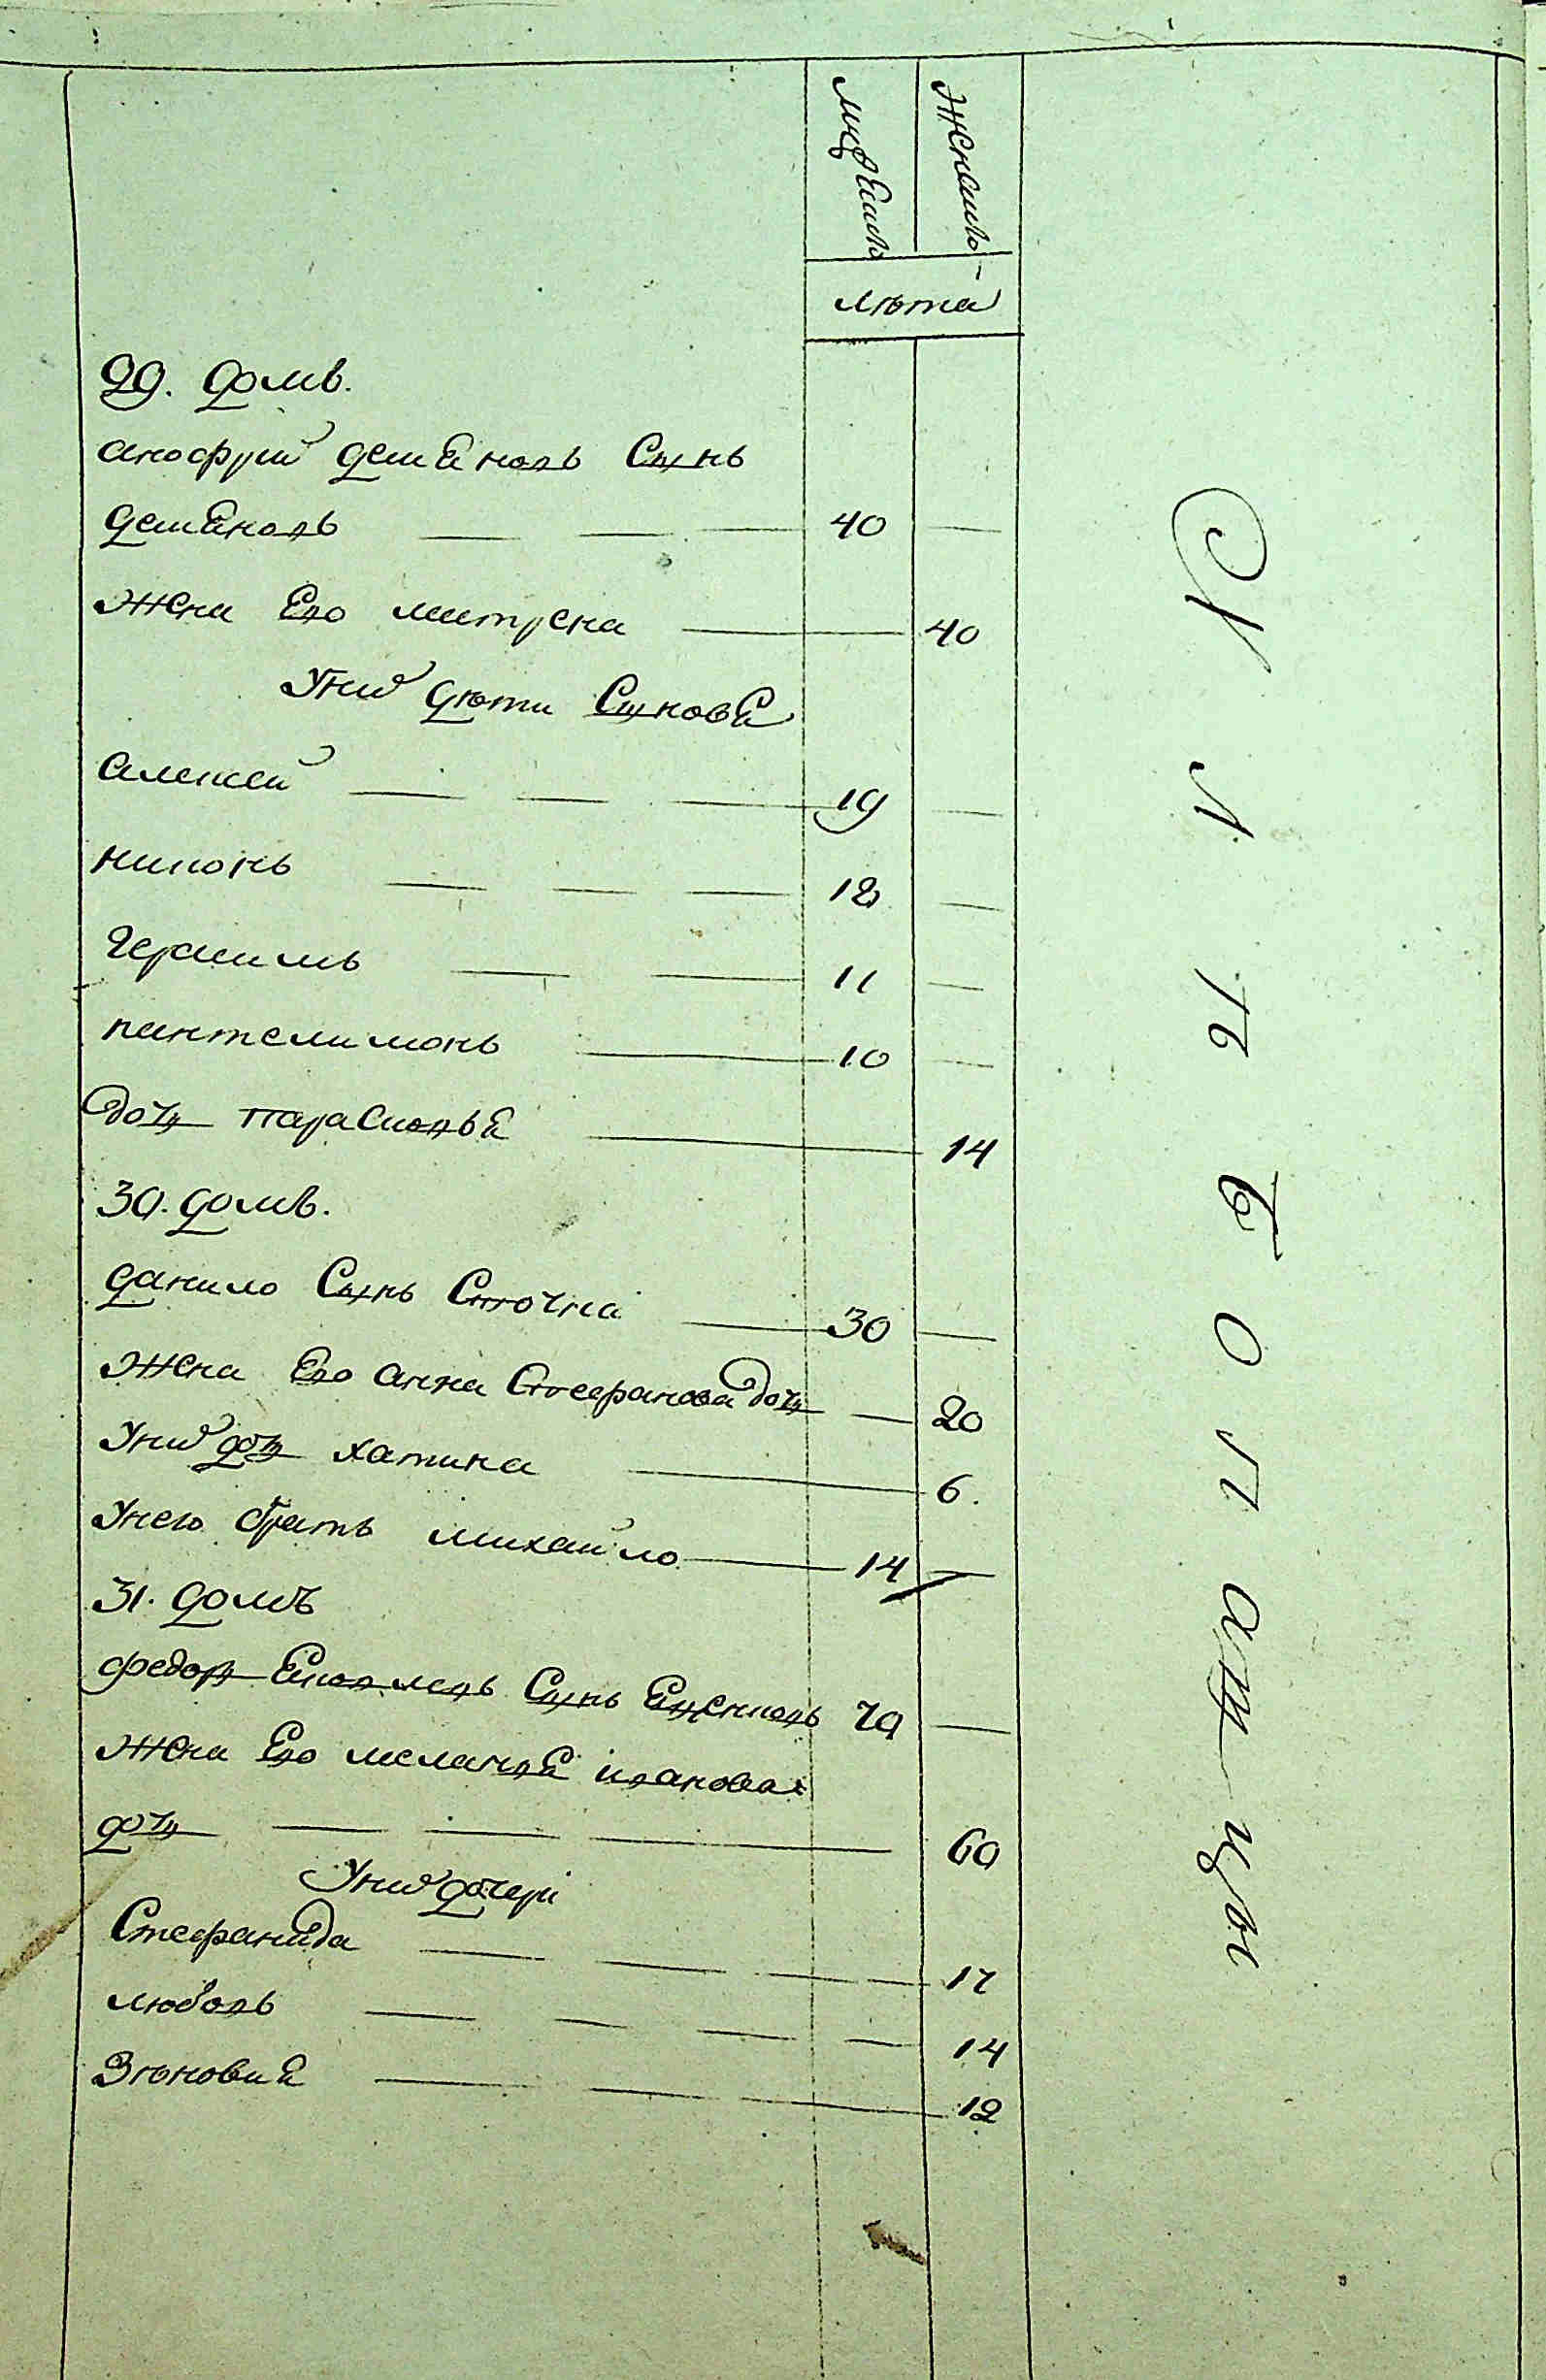 мужеска
женска
лѣта
29. домъ.
анофрий демяновъ Сынъ
демяновъ 40
жена Его митрена 40
Уних дѣти Сыновя
алексей 19
нипонъ 12
герасимъ 11
пантелимонъ 10
дочь парасковя 14
30. домъ.
данило Сынъ
30
жена Его анна Стефанова дочь 20
Уних дочь хатина 6.
Унего братъ михайло 14
31. домъ
федор Яковлевъ Сынъ 70
жена Его меланя иванова
дочь 60
Уних дочери
Стефанида 17
любовь 14
Зѣновия 12
хлѣбопашцы